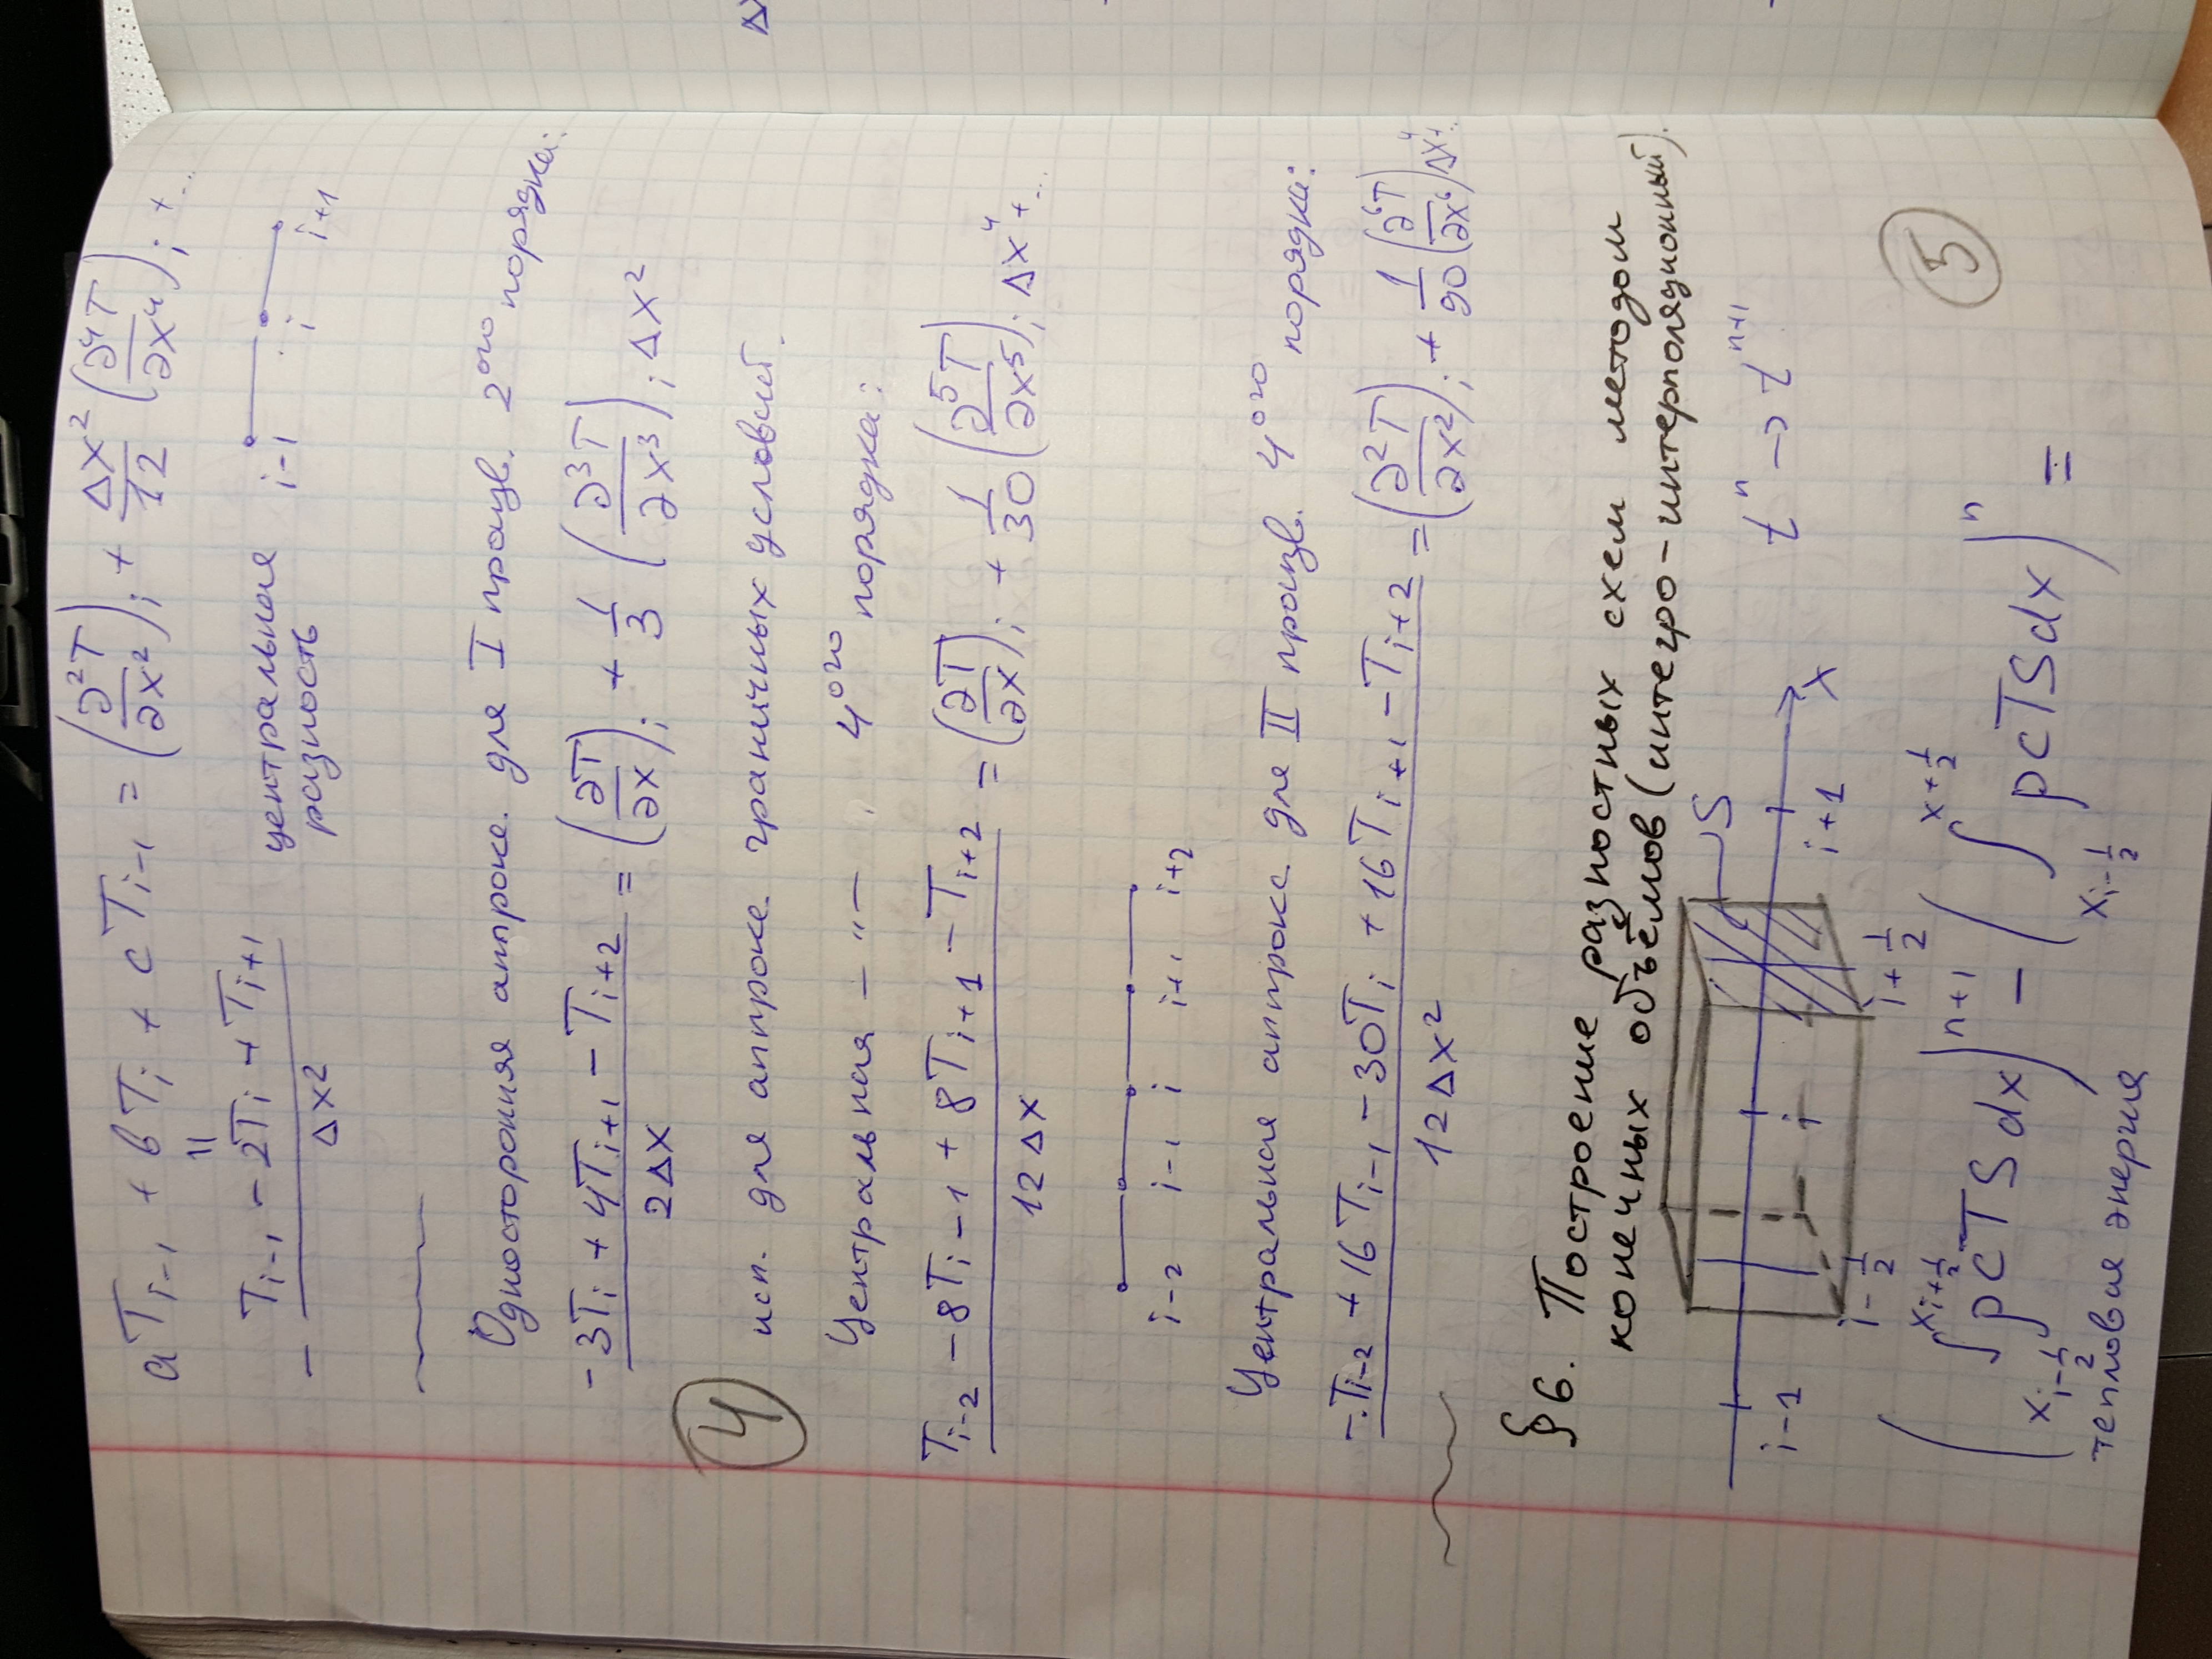 aT_{i-1} + bT_i + cT_{i-1} = (∂²T/∂x²)_i + Δx²/12 (∂⁴T/∂x⁴)_i + ...
||
- (T_{i-1} - 2T_i + T_{i+1})/Δx² центральная разность i-1 i i+1
Односторонняя аппрокс. для I произв. 2ого порядка:
(-3T_i + 4T_{i+1} - T_{i+2})/2Δx = (∂T/∂x)_i + 1/3 (∂³T/∂x³)_i Δx²
4
исп. для аппрокс. граничных условий.
Центральная –"– 4ого порядка:
(T_{i-2} - 8T_{i-1} + 8T_{i+1} - T_{i+2})/12Δx = (∂T/∂x)_i + 1/30 (∂⁵T/∂x⁵)_i Δx⁴ + ...
i-2 i-1 i i+1 i+2
Центральная аппрокс. для II произв. 4ого порядка:
(-T_{i-2} + 16T_{i-1} - 30T_i + 16T_{i+1} - T_{i+2})/12Δx² = (∂²T/∂x²)_i + 1/90 (∂⁶T/∂x⁶) Δx⁴ + ..
§6. Построение разностных схем методом
конечных объёмов (интегро-интерполяционный).
S
i-1 i i+1 x tⁿ → tⁿ⁺¹
i-1/2 i+1/2
(∫_{x_{i-1/2}}^{x_{i+1/2}} ρcTSdx)^{n+1} - (∫_{x_{i-1/2}}^{x+1/2} ρcTSdx)^n =
5
тепловая энергия